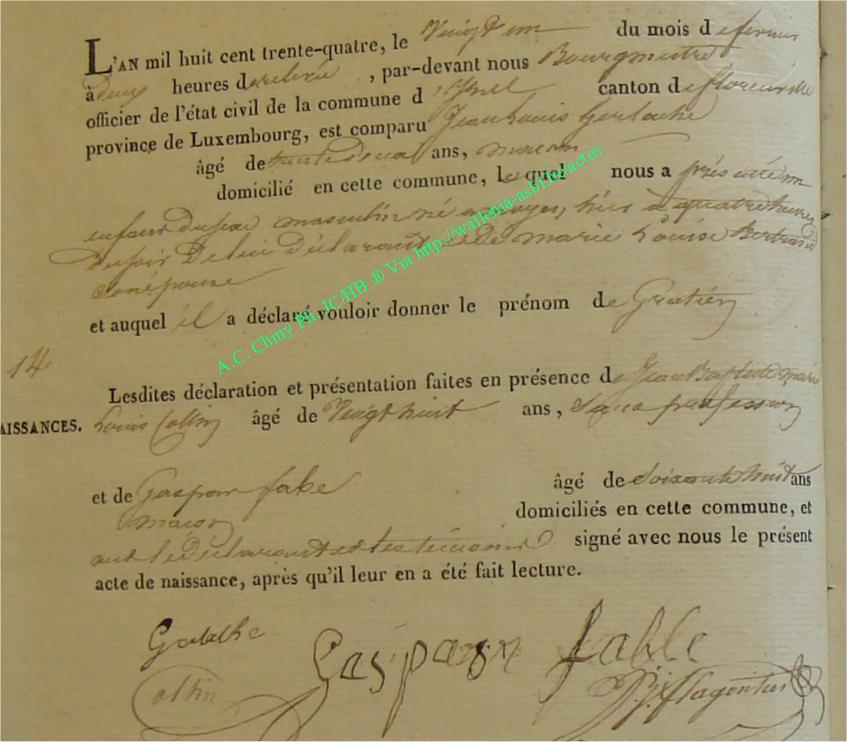 L'AN mil huit cent trente-quatre, le Vingt un du mois de fevrier
à deux heures de relevée, par-devant nous Bourgmestre
officier de l'état civil de la commune d'Izel canton de florenville
province de Luxembourg, est comparu Jean Louis Gerlache
âgé de trente deux ans, macon
domicilié en cette commune, lequel nous a présenté un
enfant du sexe masculin né hier à quatre heures
du soir De lui Déclarant et de Marie Louise Bertrand
son épouse
et auquel il a déclaré vouloir donner le prénom de Gratien
14
Lesdites déclaration et présentation faites en présence de Jean Baptiste marie
AISSANCES. Louis Collin âgé de Vingt huit ans, sans profession
et de Gaspar fabe âgé de soixante huit ans
macon domiciliés en cette commune, et
ont le déclarant et les témoins signé avec nous le présent
acte de naissance, après qu'il leur en a été fait lecture.
Gaspar fable
Collin
A.C. Chiny Ph. JC/HB ® Via http://wallonia-asbl.be/actes